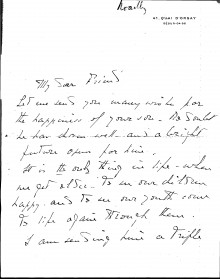 My dear Friend
Let me send you many wishes for
the happiness of your son. No doubt
he has done well and a bright
future opens for him.
It is the only thing in life when
we get older to see our children
happy and to see our youth come
to life again through them.
I am sending him a trifle